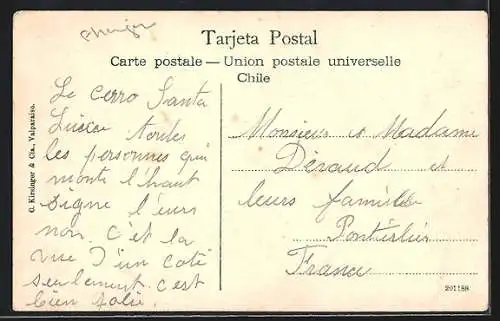 Tarjeta Postal
Carte postale — Union postale universelle
Chile
G. Kirsinger & Cia., Valparaiso.
Le cerro Santa
Lucca toutes
les personnes qui
monte l'haut
signe l'eurs
non. C'et la
vue d'un coté
seulement c'est
bien jolie.
Monsieur et Madame
Déraud et
leurs famille
Pontarlier
France
201188